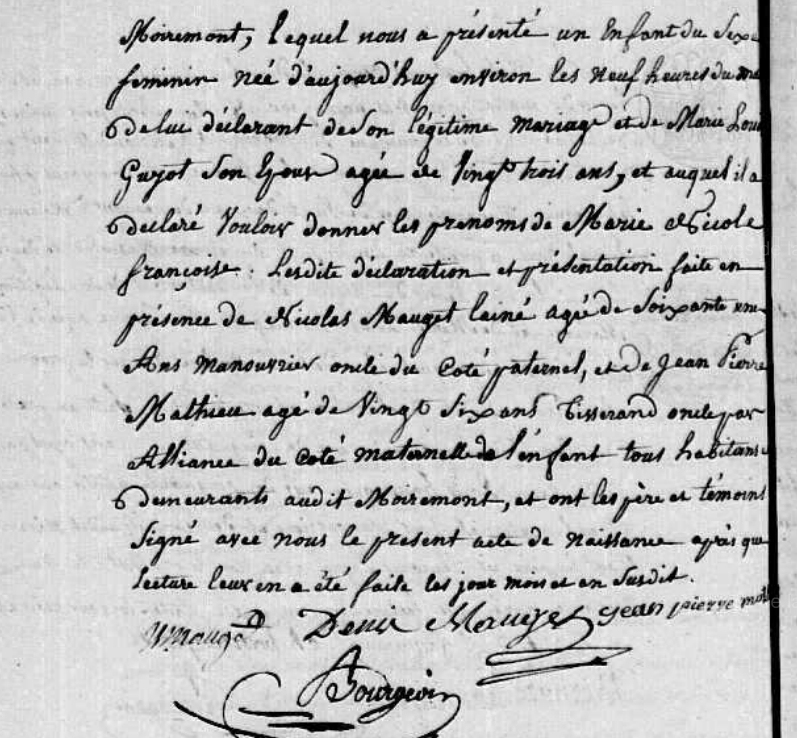 Moiremont, lequel nous a présenté un Enfant du Sexe
feminin née d'aujourd'huy environ les neuf heures du
de lui déclarant de Son légitime mariage et de Marie Loui
Guyot Son Epouse agée de Vingt trois ans, et auquel il a
declaré Vouloir donner les prenoms de Marie Nicole
francoise. Lesdite déclaration et présentation faite en
présence de Nicolas Mauget lainé agé de Soixante une
Ans manouvrier oncle du Coté paternel, et de Jean Pierre
Mathieu agé de Vingt Six ans Tisserand oncle par
Alliance du Coté maternelle de l'enfant tous habitans
demeurants audit Moiremont, et ont les père et témoins
Signé avec nous le present acte de naissance après que
Lecture leur en a été faite les jour mois et an Susdit.
Denis Mauget jean pierre
Bourgeois